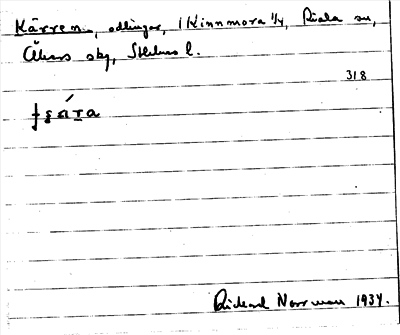 Kärren, odlingar, 1 Kinnmora 1/4, Riala sn,
Åkers skg, Sthlms l.
318
Rickard Norrman 1934.